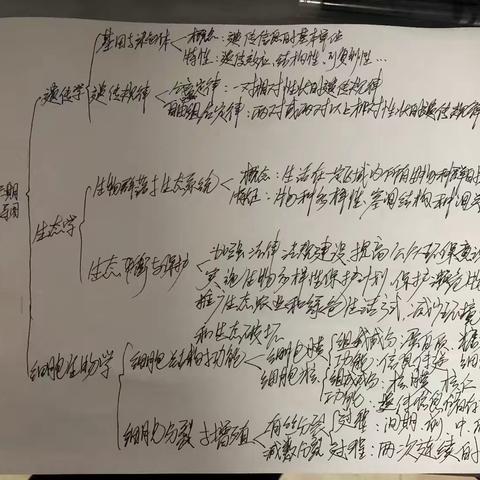 基因与染色体 概念：遗传信息的基本单位
特性：遗传效应、结构性、可复制性…
遗传学 遗传规律 分离定律：一对相对性状的遗传规律
自由组合定律：两对或两对以上相对性状的遗传规律
生物群落与生态系统 概念：生活在一定区域内所有的物种群
特征：物种多样性、营养结构和调
生态学
生态平衡与保护 加强法律法规建设，提高公众环保意识
实施生物多样性保护计划，保护濒危物
推广生态农业和绿色生活方式，减少环境
和生态破坏
细胞生物学 细胞结构与功能 细胞膜 组成成分：蛋白质
功能：信息传递
细胞核 组成成分：核膜、核仁
功能：遗传信息储存
细胞分裂与增殖 有丝分裂 过程：间期、前、中
减数分裂 过程：两次连续的